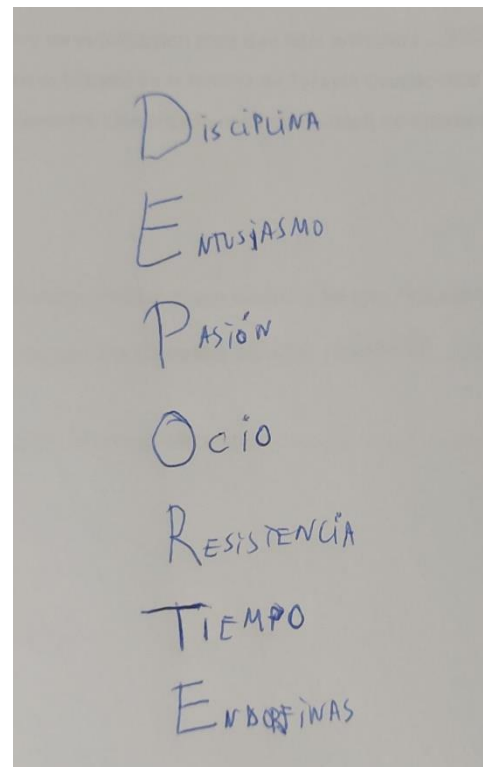 DisciPLiNA
ENTUSiASMO
PASióN
Ocio
RESiSTENCiA
TiEMPO
ENDORFiNAS